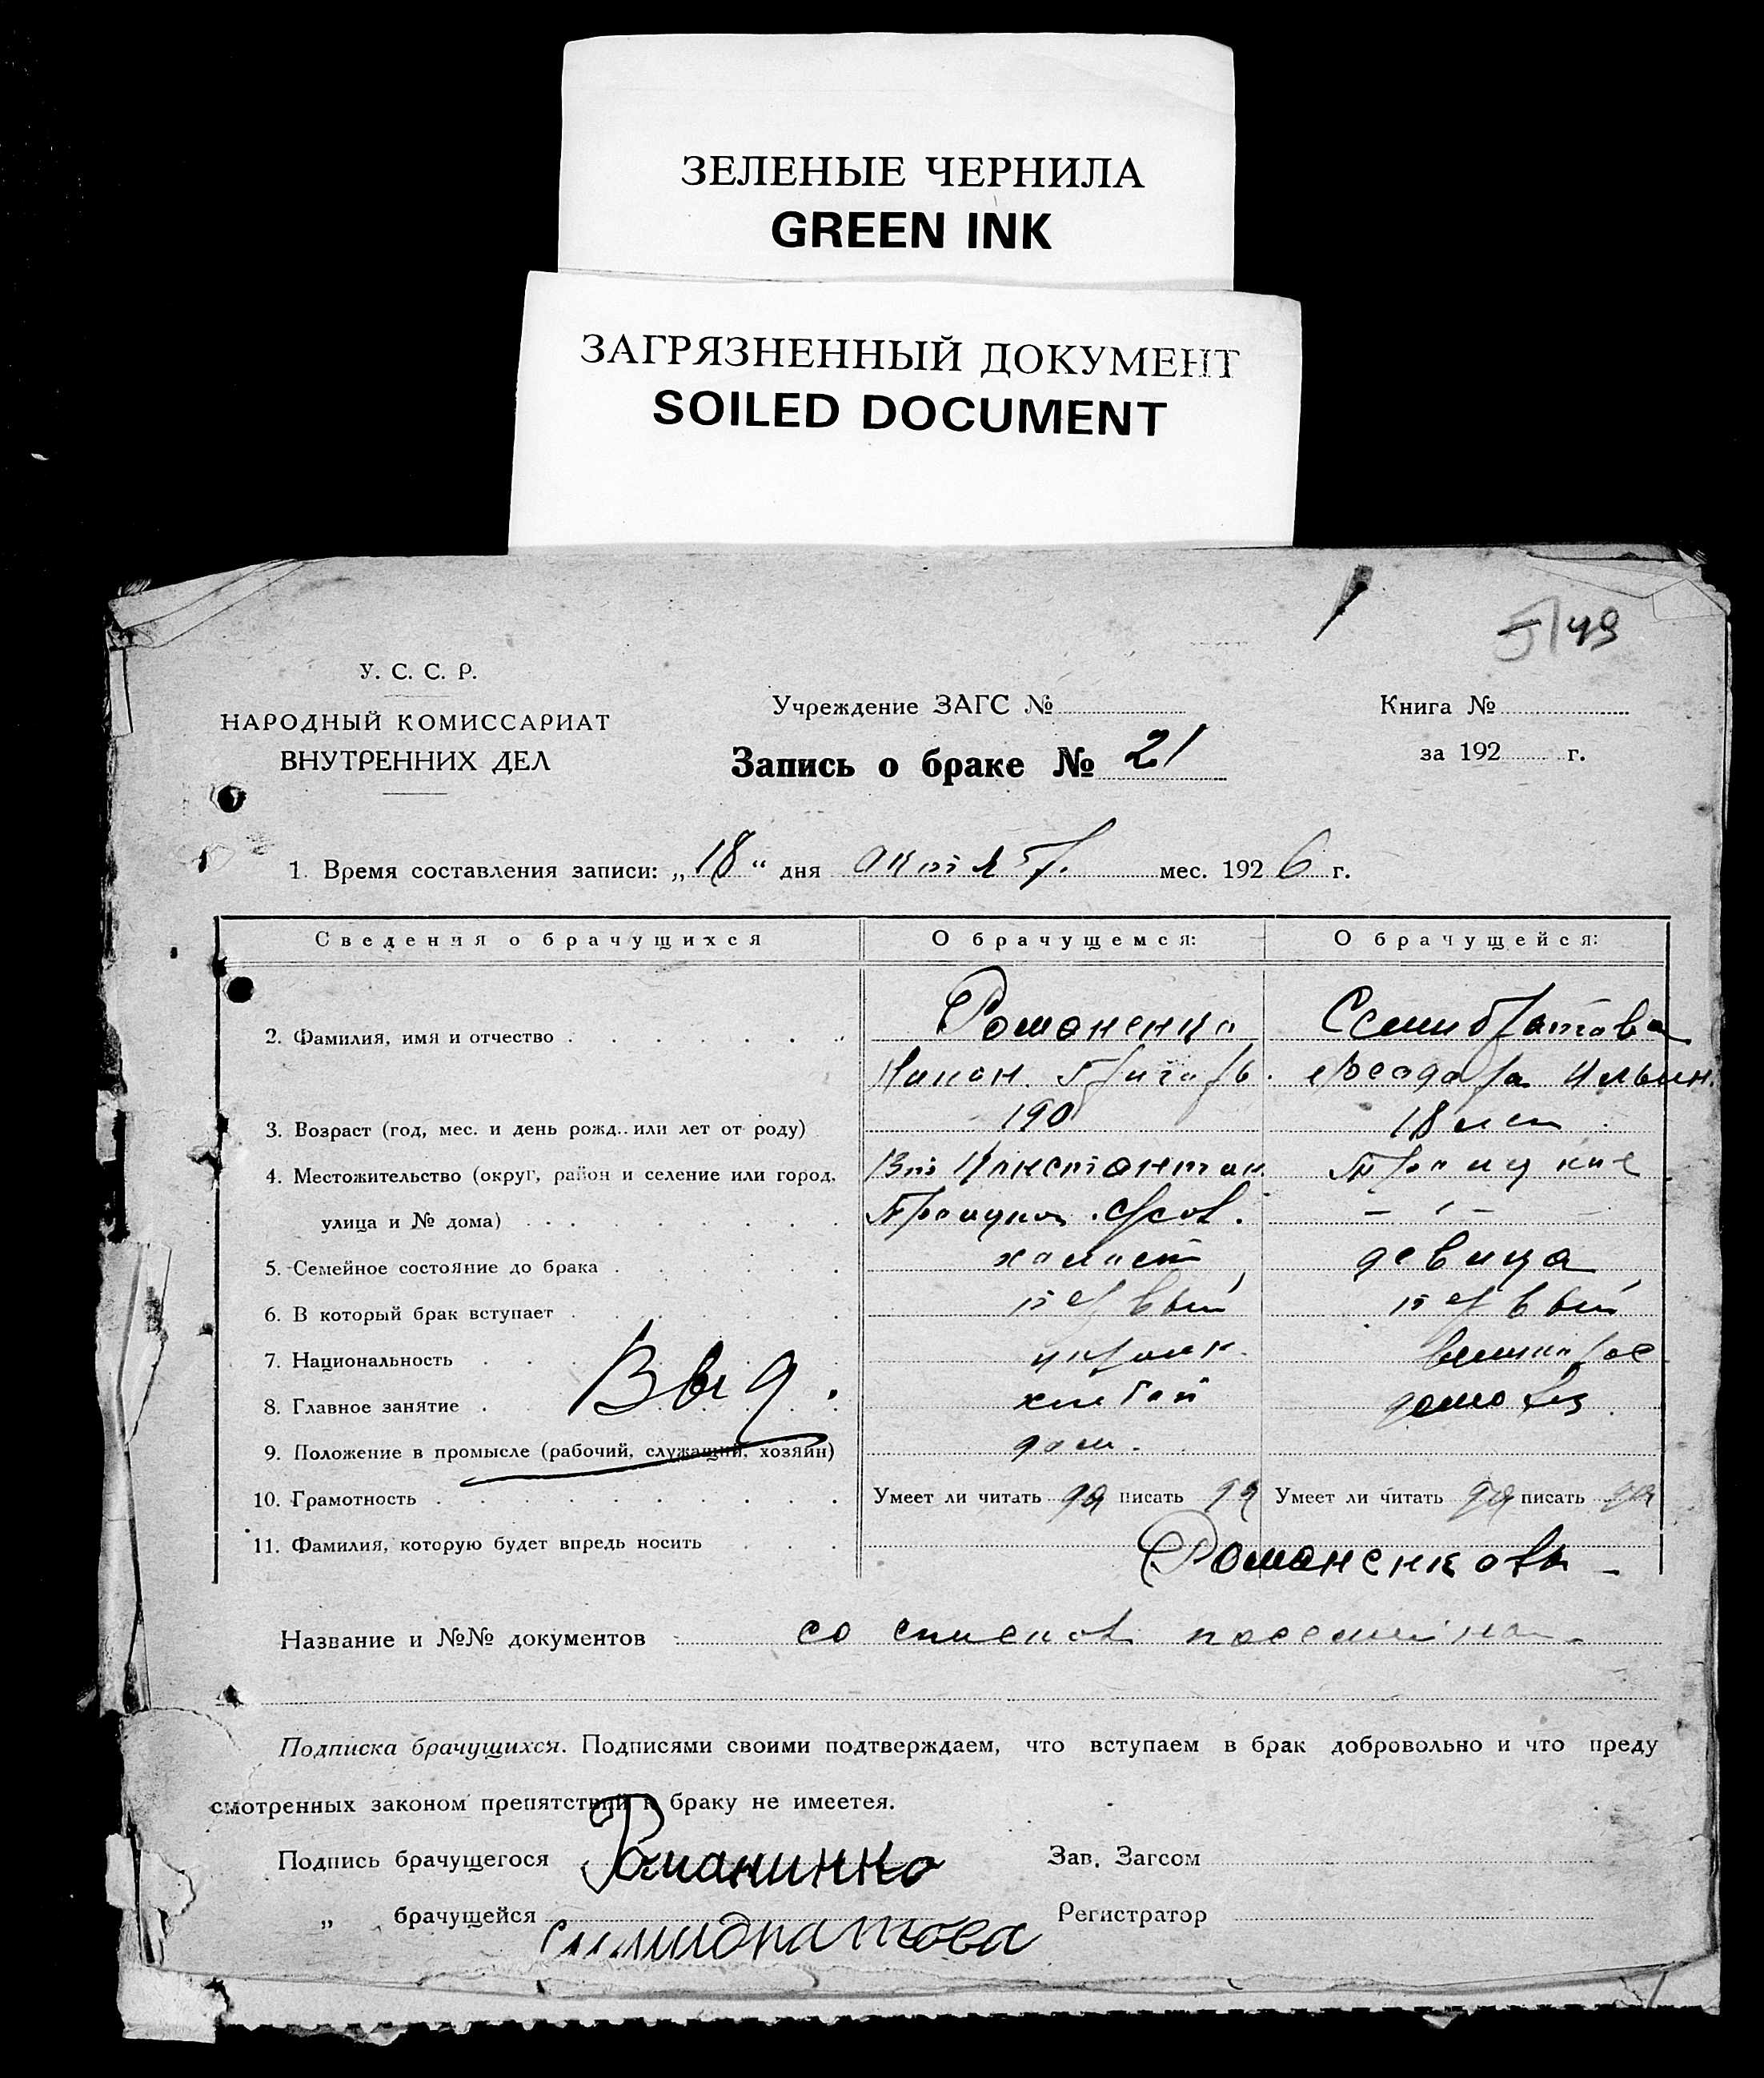 ЗЕЛЕНЫЕ ЧЕРНИЛА
GREEN INK
ЗАГРЯЗНЕННЫЙ ДОКУМЕНТ
SOILED DOCUMENT
49
У. С. С. Р.
НАРОДНЫЙ КОМИССАРИАТ
ВНУТРЕННИХ ДЕЛ
Учреждение ЗАГС №
Запись о браке № 21
Книга №
за 192 г.
1. Время составления записи: „18“ дня октяб. мес. 1926 г.
Сведения о брачущихся О брачущемся: О брачущейся:
2. Фамилия, имя и отчество Романенко Семибратова
Никон. Григорь. Феодора Ильин.
3. Возраст (год, мес. и день рожд. или лет от роду) 190 18 лет
4. Местожительство (округ, район и селение или город, Константин Троицкое
улица и № дома) Троицког. с/сов. – „ –
5. Семейное состояние до брака холост девица
6. В который брак вступает первый первый
7. Национальность украин. великорос
8. Главное занятие хлебоп домохоз
Выд.
9. Положение в промысле (рабочий, служащий, хозяйн) дом.
10. Грамотность Умеет ли читать да писать да Умеет ли читать да писать да
11. Фамилия, которую будет впредь носить Романенковы
Название и №№ документов со списков
Подписка брачущихся. Подписями своими подтверждаем, что вступаем в брак добровольно и что преду
смотренных законом препятствий к браку не имеетея.
Подпись брачущегося Романинко Зав. Загсом
„ брачущейся Симибратова Регистратор